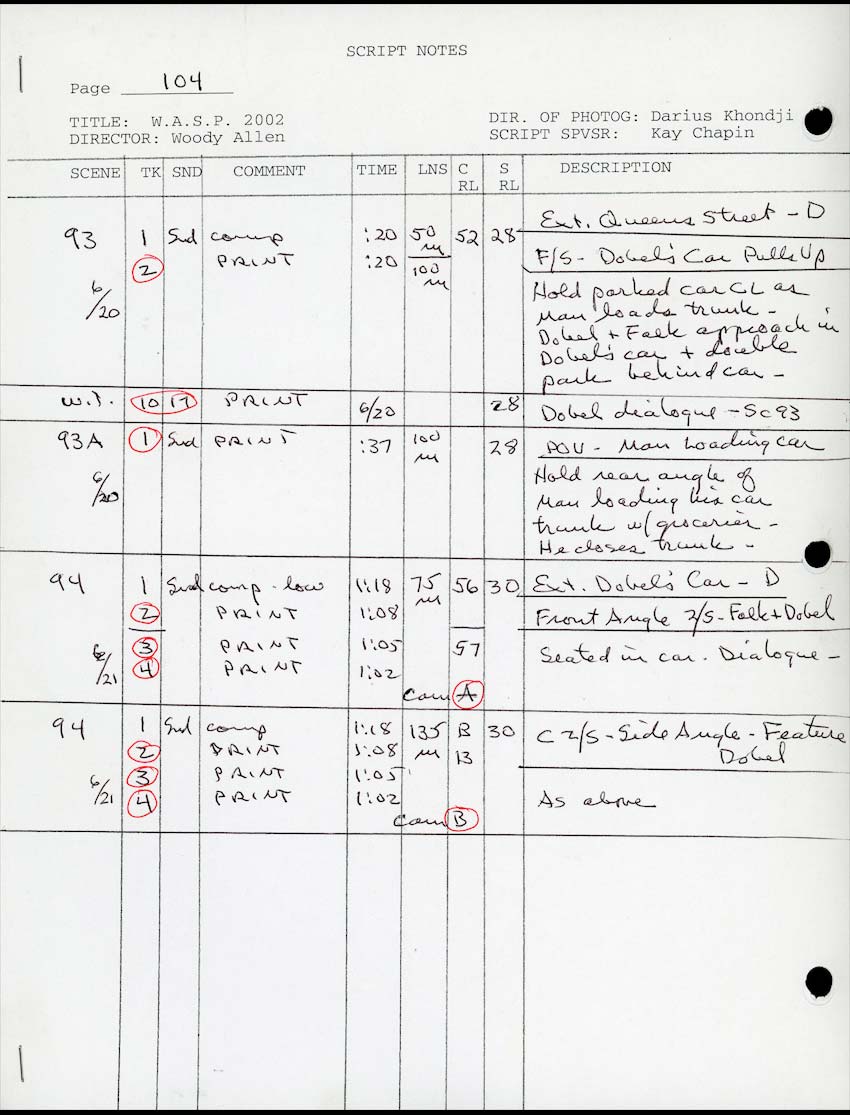 SCRIPT NOTES
Page 104
TITLE: W.A.S.P. 2002
DIR. OF PHOTOG: Darius Khondji
DIRECTOR: Woody Allen
SCRIPT SPVSR: Kay Chapin
SCENE TK SND COMMENT TIME LNS C RL S RL DESCRIPTION
Ext. Queens Street - D
93 1 Snd comp :20 50 m 52 28
2 PRINT :20 100 m F/S - Dobel's Car Pulls Up
6/20
Hold parked car CL as
Man loads trunk -
Dobel + Falk approach in
Dobel's car + double
park behind car -
W.T. 10 17 PRINT 6/20 28 Dobel dialogue - Sc 93
93A 1 Snd PRINT :37 100 m 28 POV - Man Loading Car
6/20
Hold rear angle of
Man loading his car
trunk w/ groceries -
He closes trunk -
94 1 Snd comp - low 1:18 75 m 56 30 Ext. Dobel's Car - D
2 PRINT 1:08 Front Angle 2/S - Falk + Dobel
3 PRINT 1:05 57 Seated in car. Dialogue -
6/21 4 PRINT 1:02
Cam A
94 1 Snd comp 1:18 135 m B 13 30 C 2/S - Side Angle - Feature
2 PRINT 1:08 Dobel
3 PRINT 1:05
6/21 4 PRINT 1:02 As above
Cam B